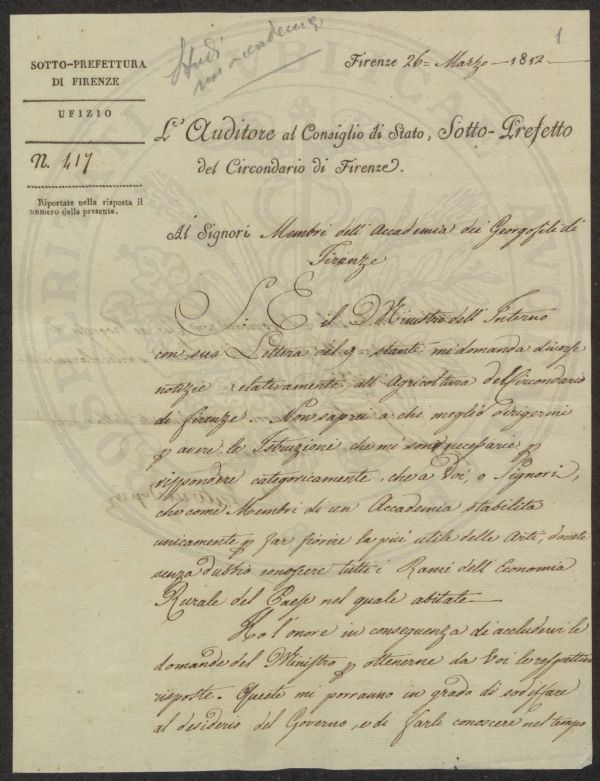 1
Studi
Firenze 26= Marzo 1812
SOTTO-PREFETTURA
DI FIRENZE
UFIZIO
N. 417
Riportate nella risposta il
numero della presente.
L'Auditore al Consiglio di Stato, Sotto-Prefetto
del Circondario di Firenze.
Al Signori Membri dell'Accademia dei Georgofili di
Firenze
S. E il Ministro dell'Interno
con sua Lettera del 9= stante mi domanda diverse
notizie relativamente all'Agricoltura del Circondario
di Firenze. Non saprei a chi meglio dirigermi
p avere le Istruzione che mi sono necessarie p
rispondere categoricamente, che a Voi, o Signori,
che come Membri di un Accademia stabilita
unicamente p far fiorire la più utile delle Arti, dovete
senza dubbio conoscere tutti i Rami dell'Economia
Rurale del Paese nel quale abitate
Ho l'onore in conseguenza di accludervi le
domande del Ministro p ottenerne da Voi le respettive
risposte. Queste mi porranno in grado di sodisfare
al desiderio del Governo, e di farle conoscere nel tempo